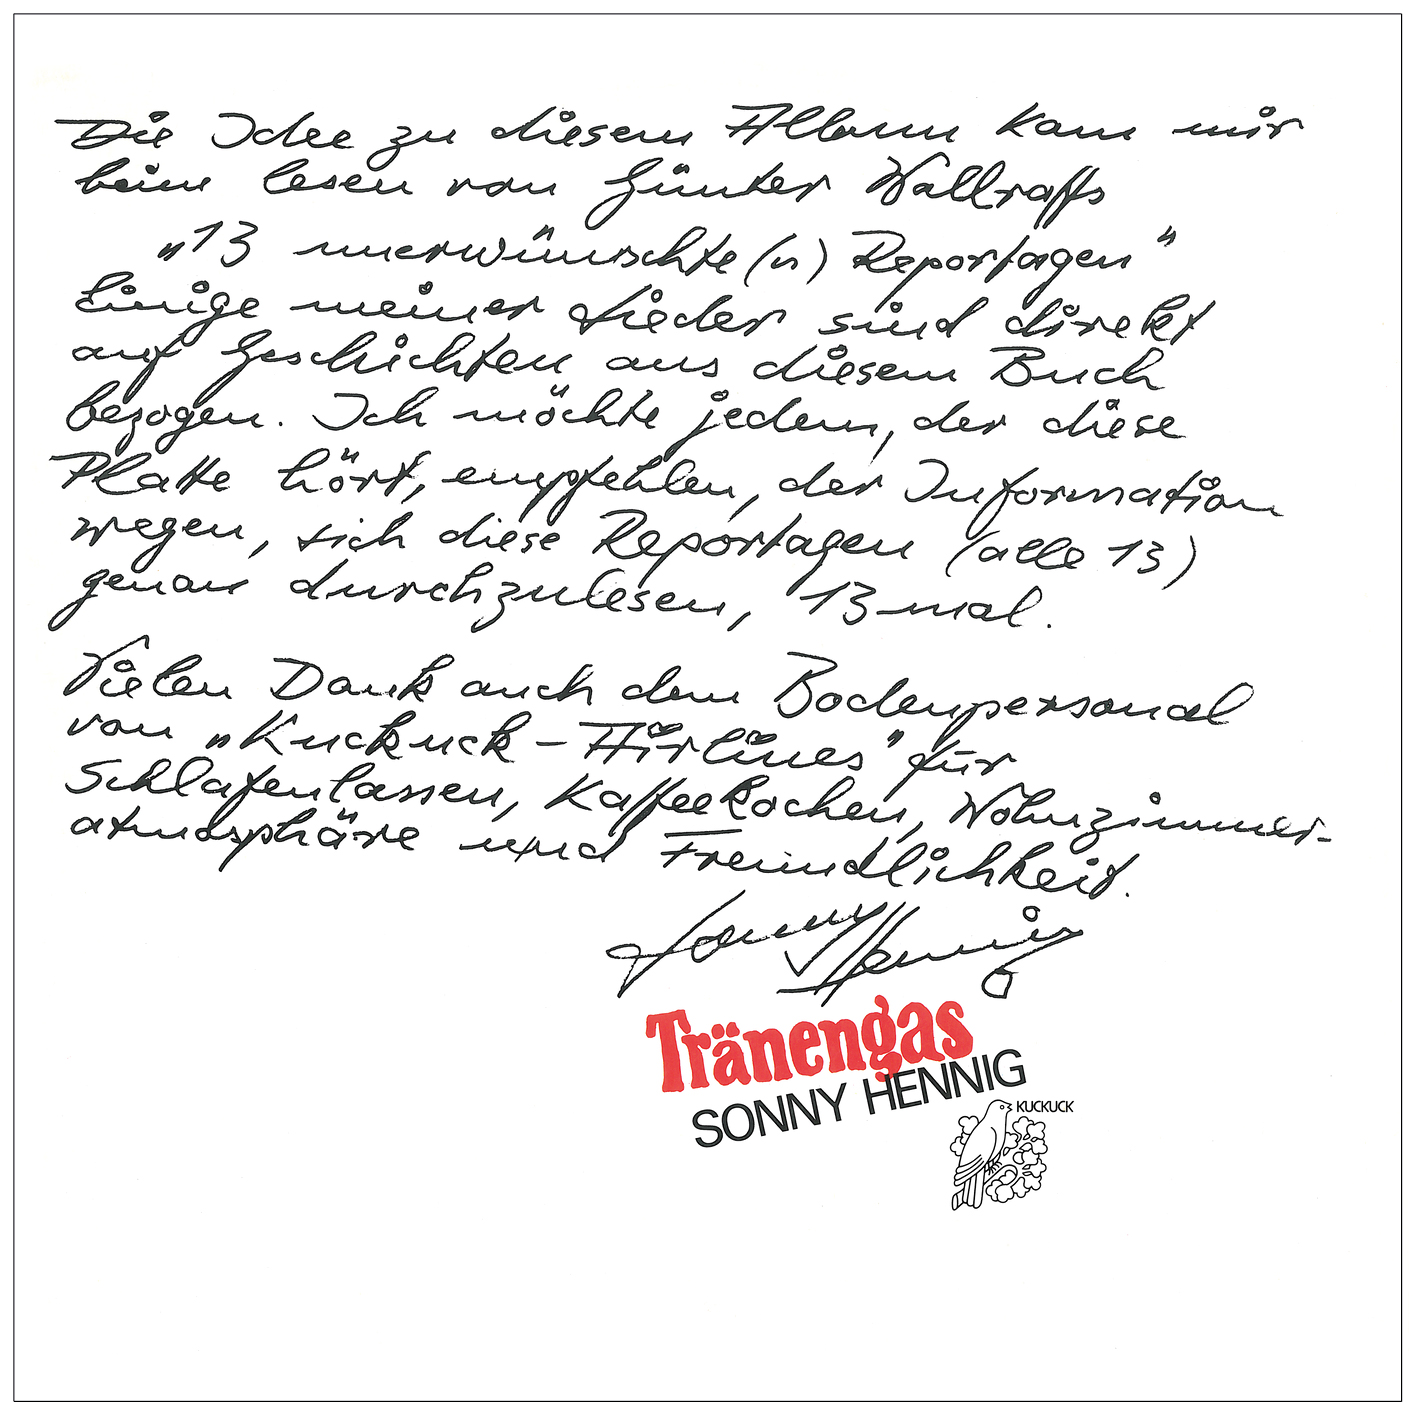 Die Idee zu diesem Album kam mir
beim lesen von Günter Wallraffs
„13 unerwünschte(n) Reportagen"
Einige meiner Lieder sind direkt
auf Geschichten aus diesem Buch
bezogen. Ich möchte jedem, der diese
Platte hört, empfehlen, der Information
wegen, sich diese Reportagen (alle 13)
genau durchzulesen, 13 mal.
Vielen Dank auch dem Bodenpersonal
von „Kuckuck - Airlines" für
Schlafenlassen, Kaffeekochen, Wohnzimmer-
atmosphäre und Freundlichkeit.
Sonny Hennig
Tränengas
SONNY HENNIG
KUCKUCK